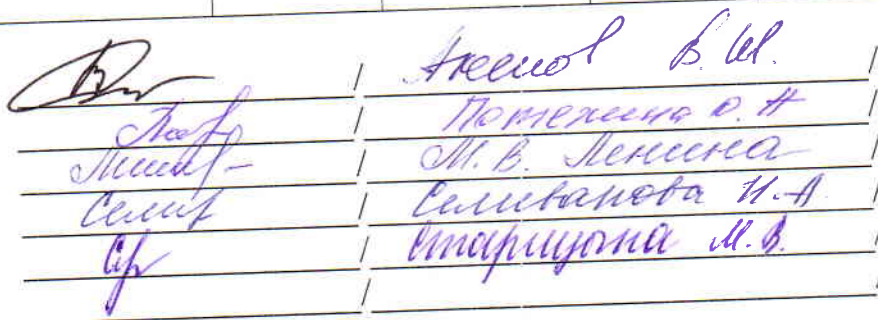 / Аксенов В.М. /
/ Потехина О.Н /
/ М.В. Ленина /
Селив / Селиванова Н.А. /
/ Старицына М.В. /
/ /